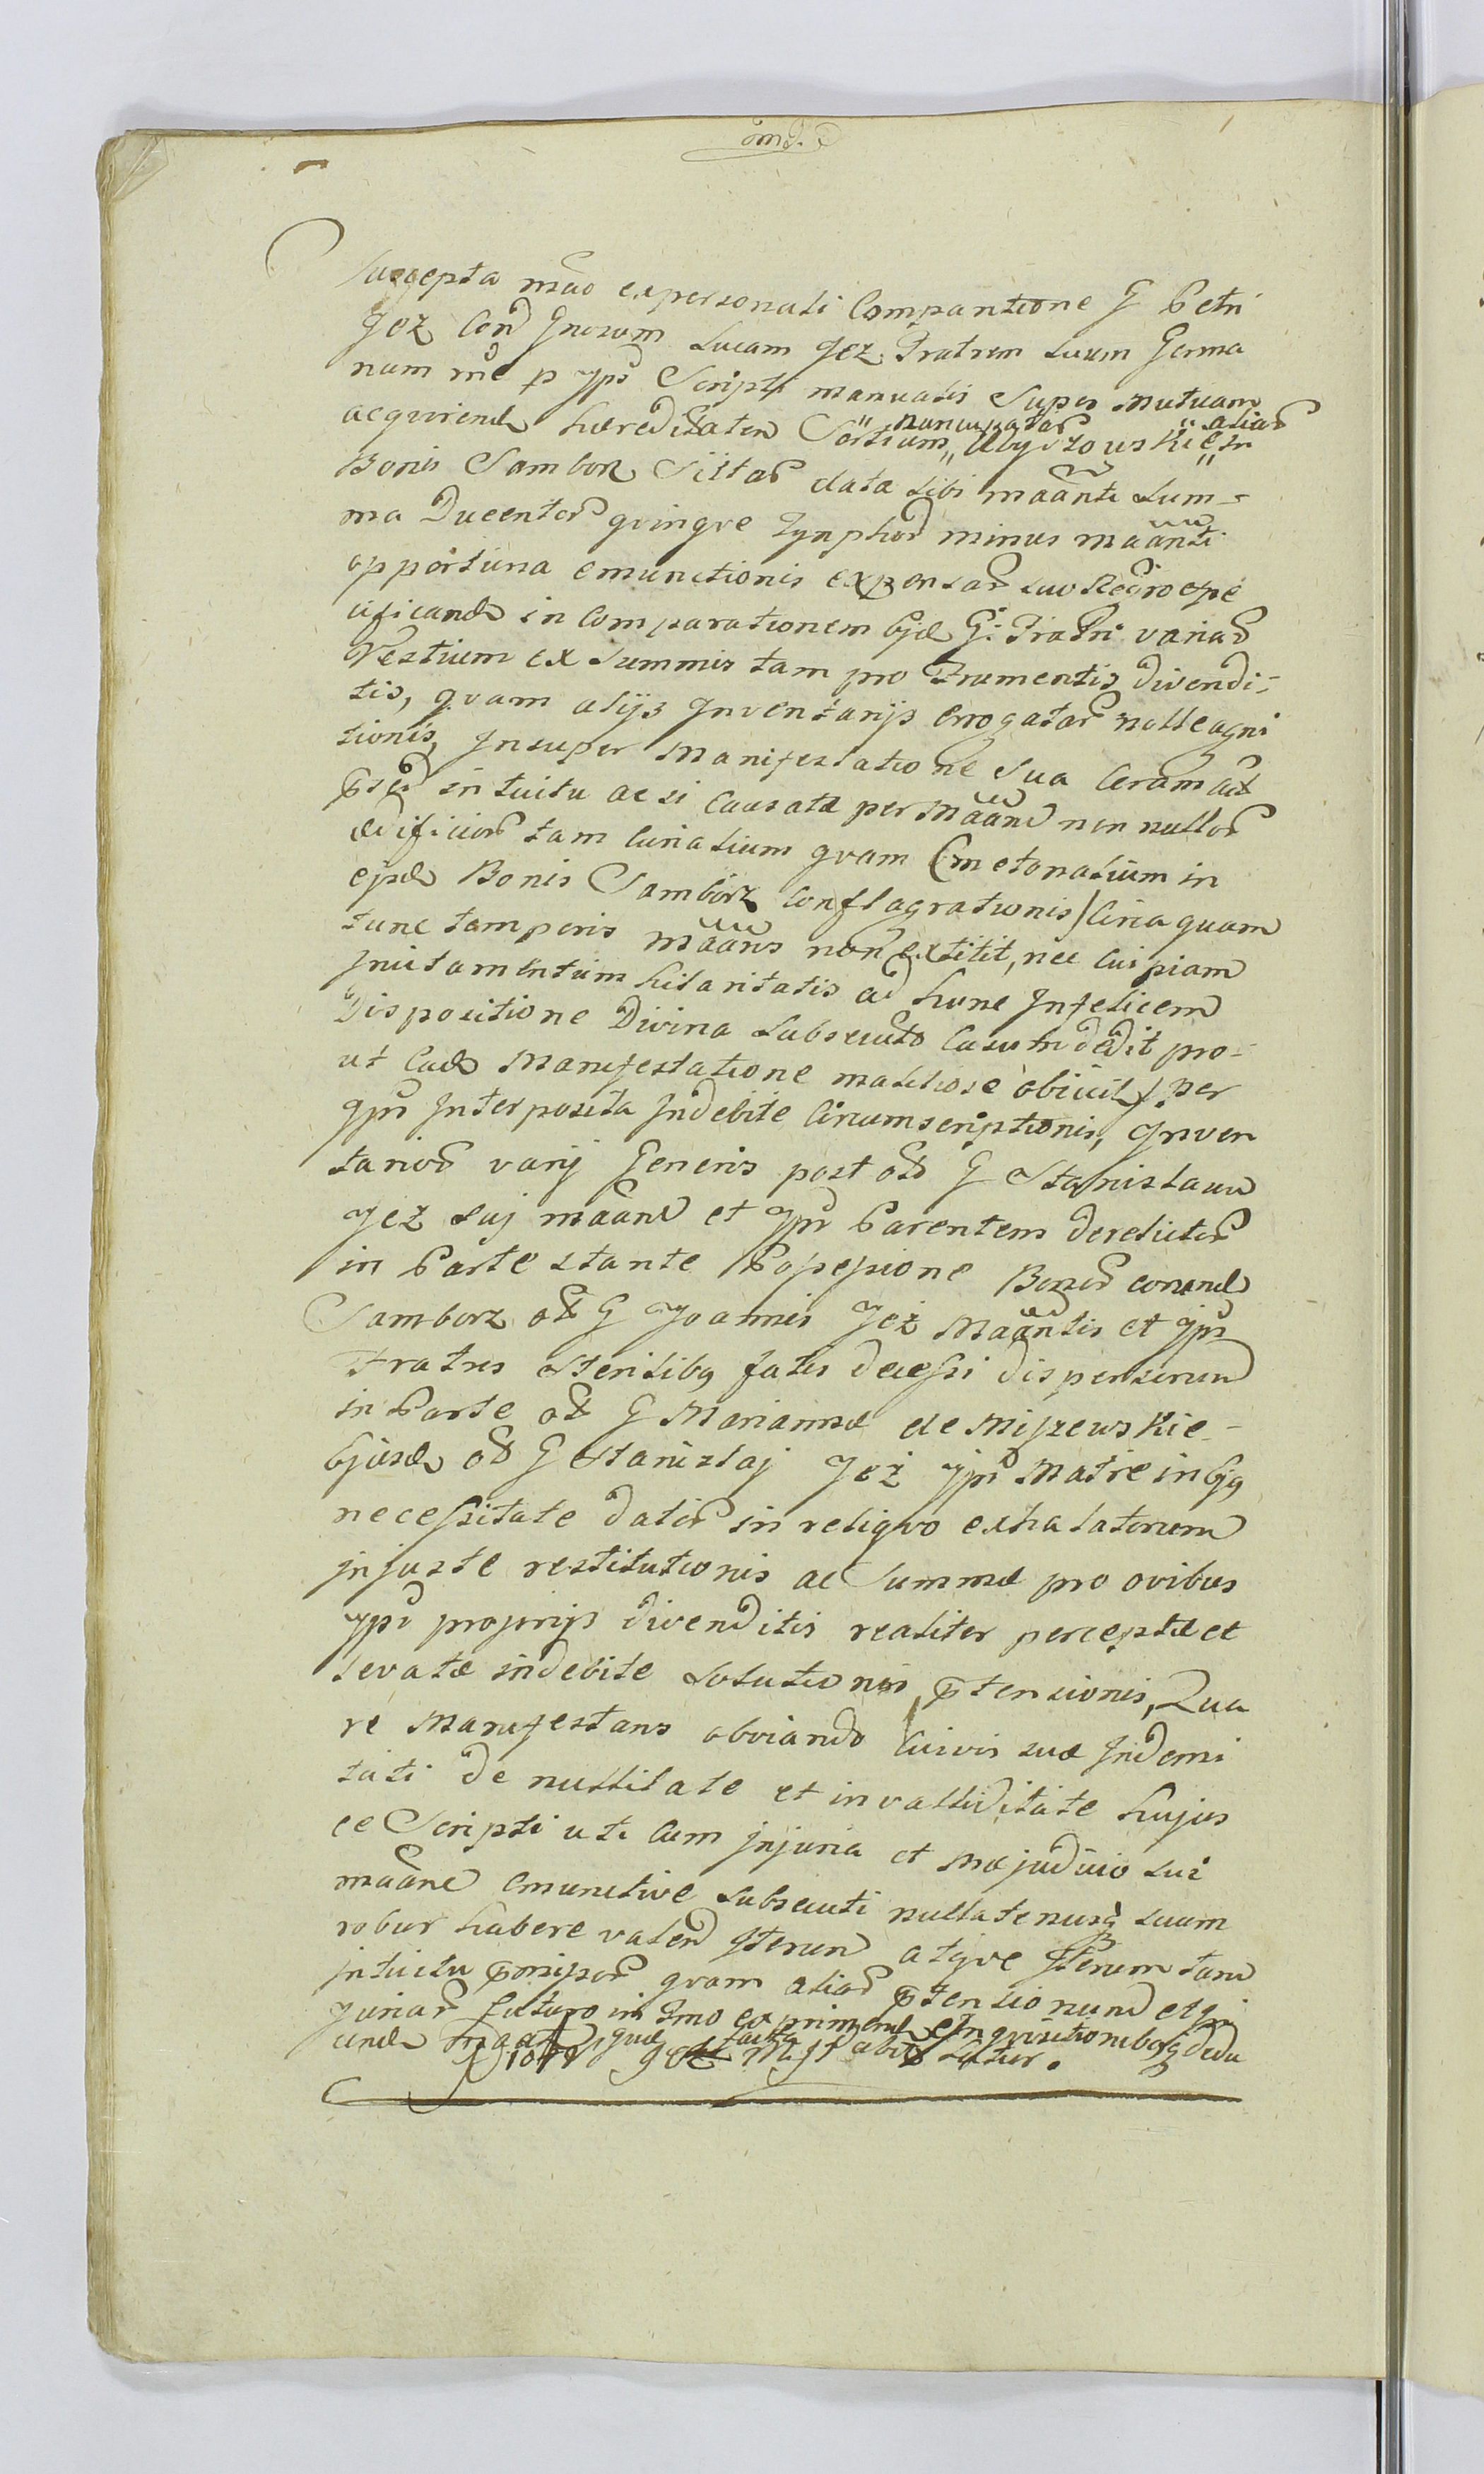 Suscepta mão ex personali Compantione G Petri
Jeż Con Gnosum Lucam Jeż Fratrem suum Germa
num rne p Ips Scripti manualis Super mutuam
acqvirend hæreditatem Sortium nuncupatar alias in
Bonis Samborz Sittar data sibi mãanti Sum-
ma Ducentor qvinqve Tynphor minus mãanti
opportuna emunctionis expensar suo Regro spe
cificand in Comparationem Ejd G: Fratri variar
Vestium ex Summis tam pro Frumentis divendi-
tis, qvam alijs Inventarijs erogatar nolle agni
tionis, Insuper Manifestatione Sua Coram act
intuitu ac si Causatæ per Mãand non nullor
ædificior tam Curialium qvam Cmetonalium in
ejsd Bonis Samborz Conflagrationis / Circa quam
tunc temporis mãans non extitit, nec Cuipiam
Incitamentum hilaritatis ad hunc Infelicem
Dispositione Divina Subsecuto Casum dedit pro-
ut Ead Manifestatione malitiose obiicit /. per
Ips Interposita Indebite Circumscriptionis, Inven
tarior varij Generis post od G Stanislaum
Jeż Suj mãand et Ips Parentem derelictor
in Parte stante Possessione Bonor eorund
Samborz od G Joannis Jeż Mãantis et Ips
Fratris Sterilibq fatis decessi dispersorum
in Parte od G Mariannæ de Miszewskie-
Ejusd od G Stanislaj Jeż Ips Matre in Ejq
necessitate dator in reliqvo exhalatorum
injuste restitutionis ac Summæ pro ovibus
Ips proprijs divenditis realiter perceptæ et
levatæ indebite Solutionis, ptensionis, Qua
re Manifestans obviando Cuivis suæ Indemi
tati de nullitate et invalliditate hujus
ce Scripti uti Cum Injuria et Præjudicio sui
mãand emunctive Subsecuti nullatenusq suum
robur habere valend Iterum atqve Iterum tam
intuitu pmissor qvam aliar ptensionum et In
juriar futuro in Tmo exprimend et Inqvisitionibq dedu
cend